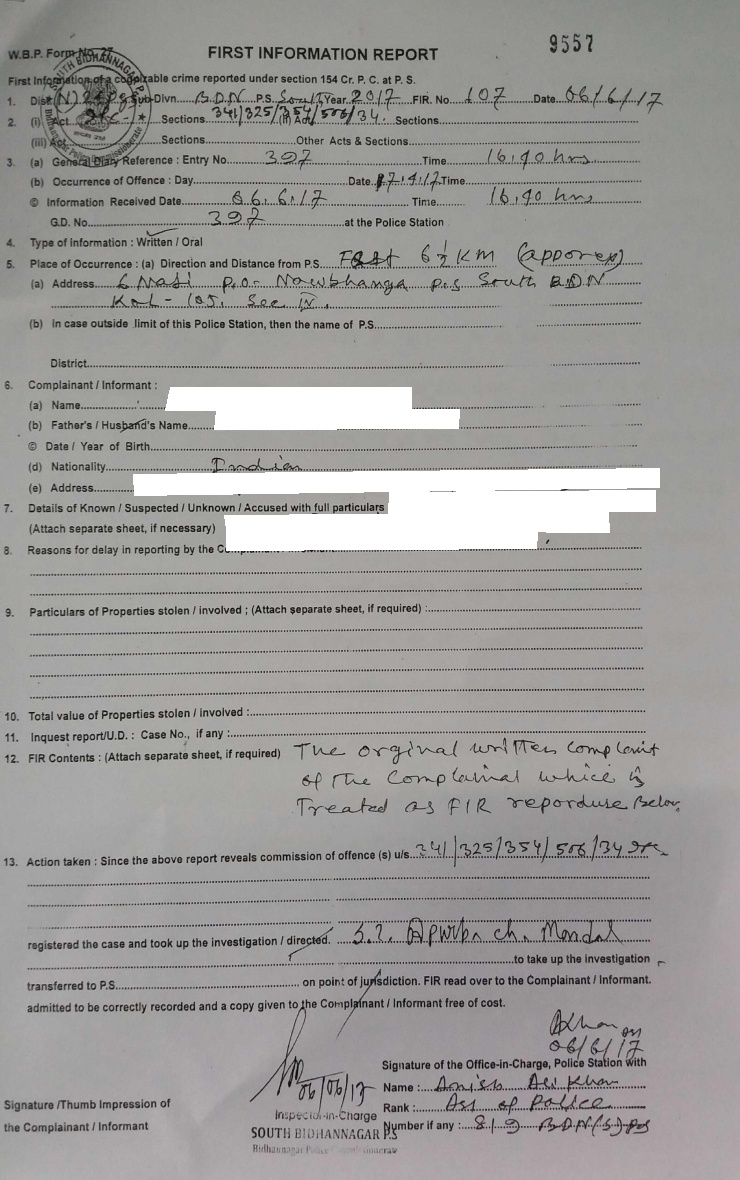 9557
W.B.P. Form No. 27
FIRST INFORMATION REPORT
First Information of a cognizable crime reported under section 154 Cr. P. C. at P. S.
1. Dist (N) 24 Pgs Sub-Divn. B.D.N P.S. South Year 2017 FIR. No 107 Date 06/6/17
2. (i) Act Sections 341/325/354/506/34. (ii) Act Sections
(iii) Act Sections Other Acts & Sections
3. (a) General Diary Reference : Entry No. 397 Time 16.40 hrs
(b) Occurrence of Offence : Day Date 17.4.17 Time
© Information Received Date 06.6.17 Time 16.40 hrs
G.D. No. 397 at the Police Station
4. Type of Information : Written / Oral
5. Place of Occurrence : (a) Direction and Distance from P.S. East 6 ½ KM (apporex)
(a) Address 6 Nasi P.O- Nowbhanga P.S South BDN
Kol- 105. Sec IV.
(b) In case outside limit of this Police Station, then the name of P.S.
District
6. Complainant / Informant :
(a) Name
(b) Father's / Husband's Name
© Date / Year of Birth
(d) Nationality Indian
(e) Address
7. Details of Known / Suspected / Unknown / Accused with full particulars
(Attach separate sheet, if necessary)
8. Reasons for delay in reporting by the
9. Particulars of Properties stolen / involved ; (Attach separate sheet, if required) :
10. Total value of Properties stolen / involved :
11. Inquest report/U.D. : Case No., if any :
12. FIR Contents : (Attach separate sheet, if required) The orginal written complaint
of the Complainal which is
Treated as FIR reporduse Below,
13. Action taken : Since the above report reveals commission of offence (s) u/s 341/325/354/506/34 IPC
registered the case and took up the investigation / directed. S.I. Apurba ch. Mondal
to take up the investigation
transferred to P.S. on point of jurisdiction. FIR read over to the Complainant / Informant.
admitted to be correctly recorded and a copy given to the Complainant / Informant free of cost.
06/6/17
Signature of the Office-in-Charge, Police Station with
06/06/17
Name : Anish Ali Khan
Signature /Thumb Impression of
Rank : ASI of Police
the Complainant / Informant
Inspector-in-Charge
SOUTH BIDHANNAGAR P.S
Number if any : 819 BDN(S) PS
Bidhannagar Police Commissionerate